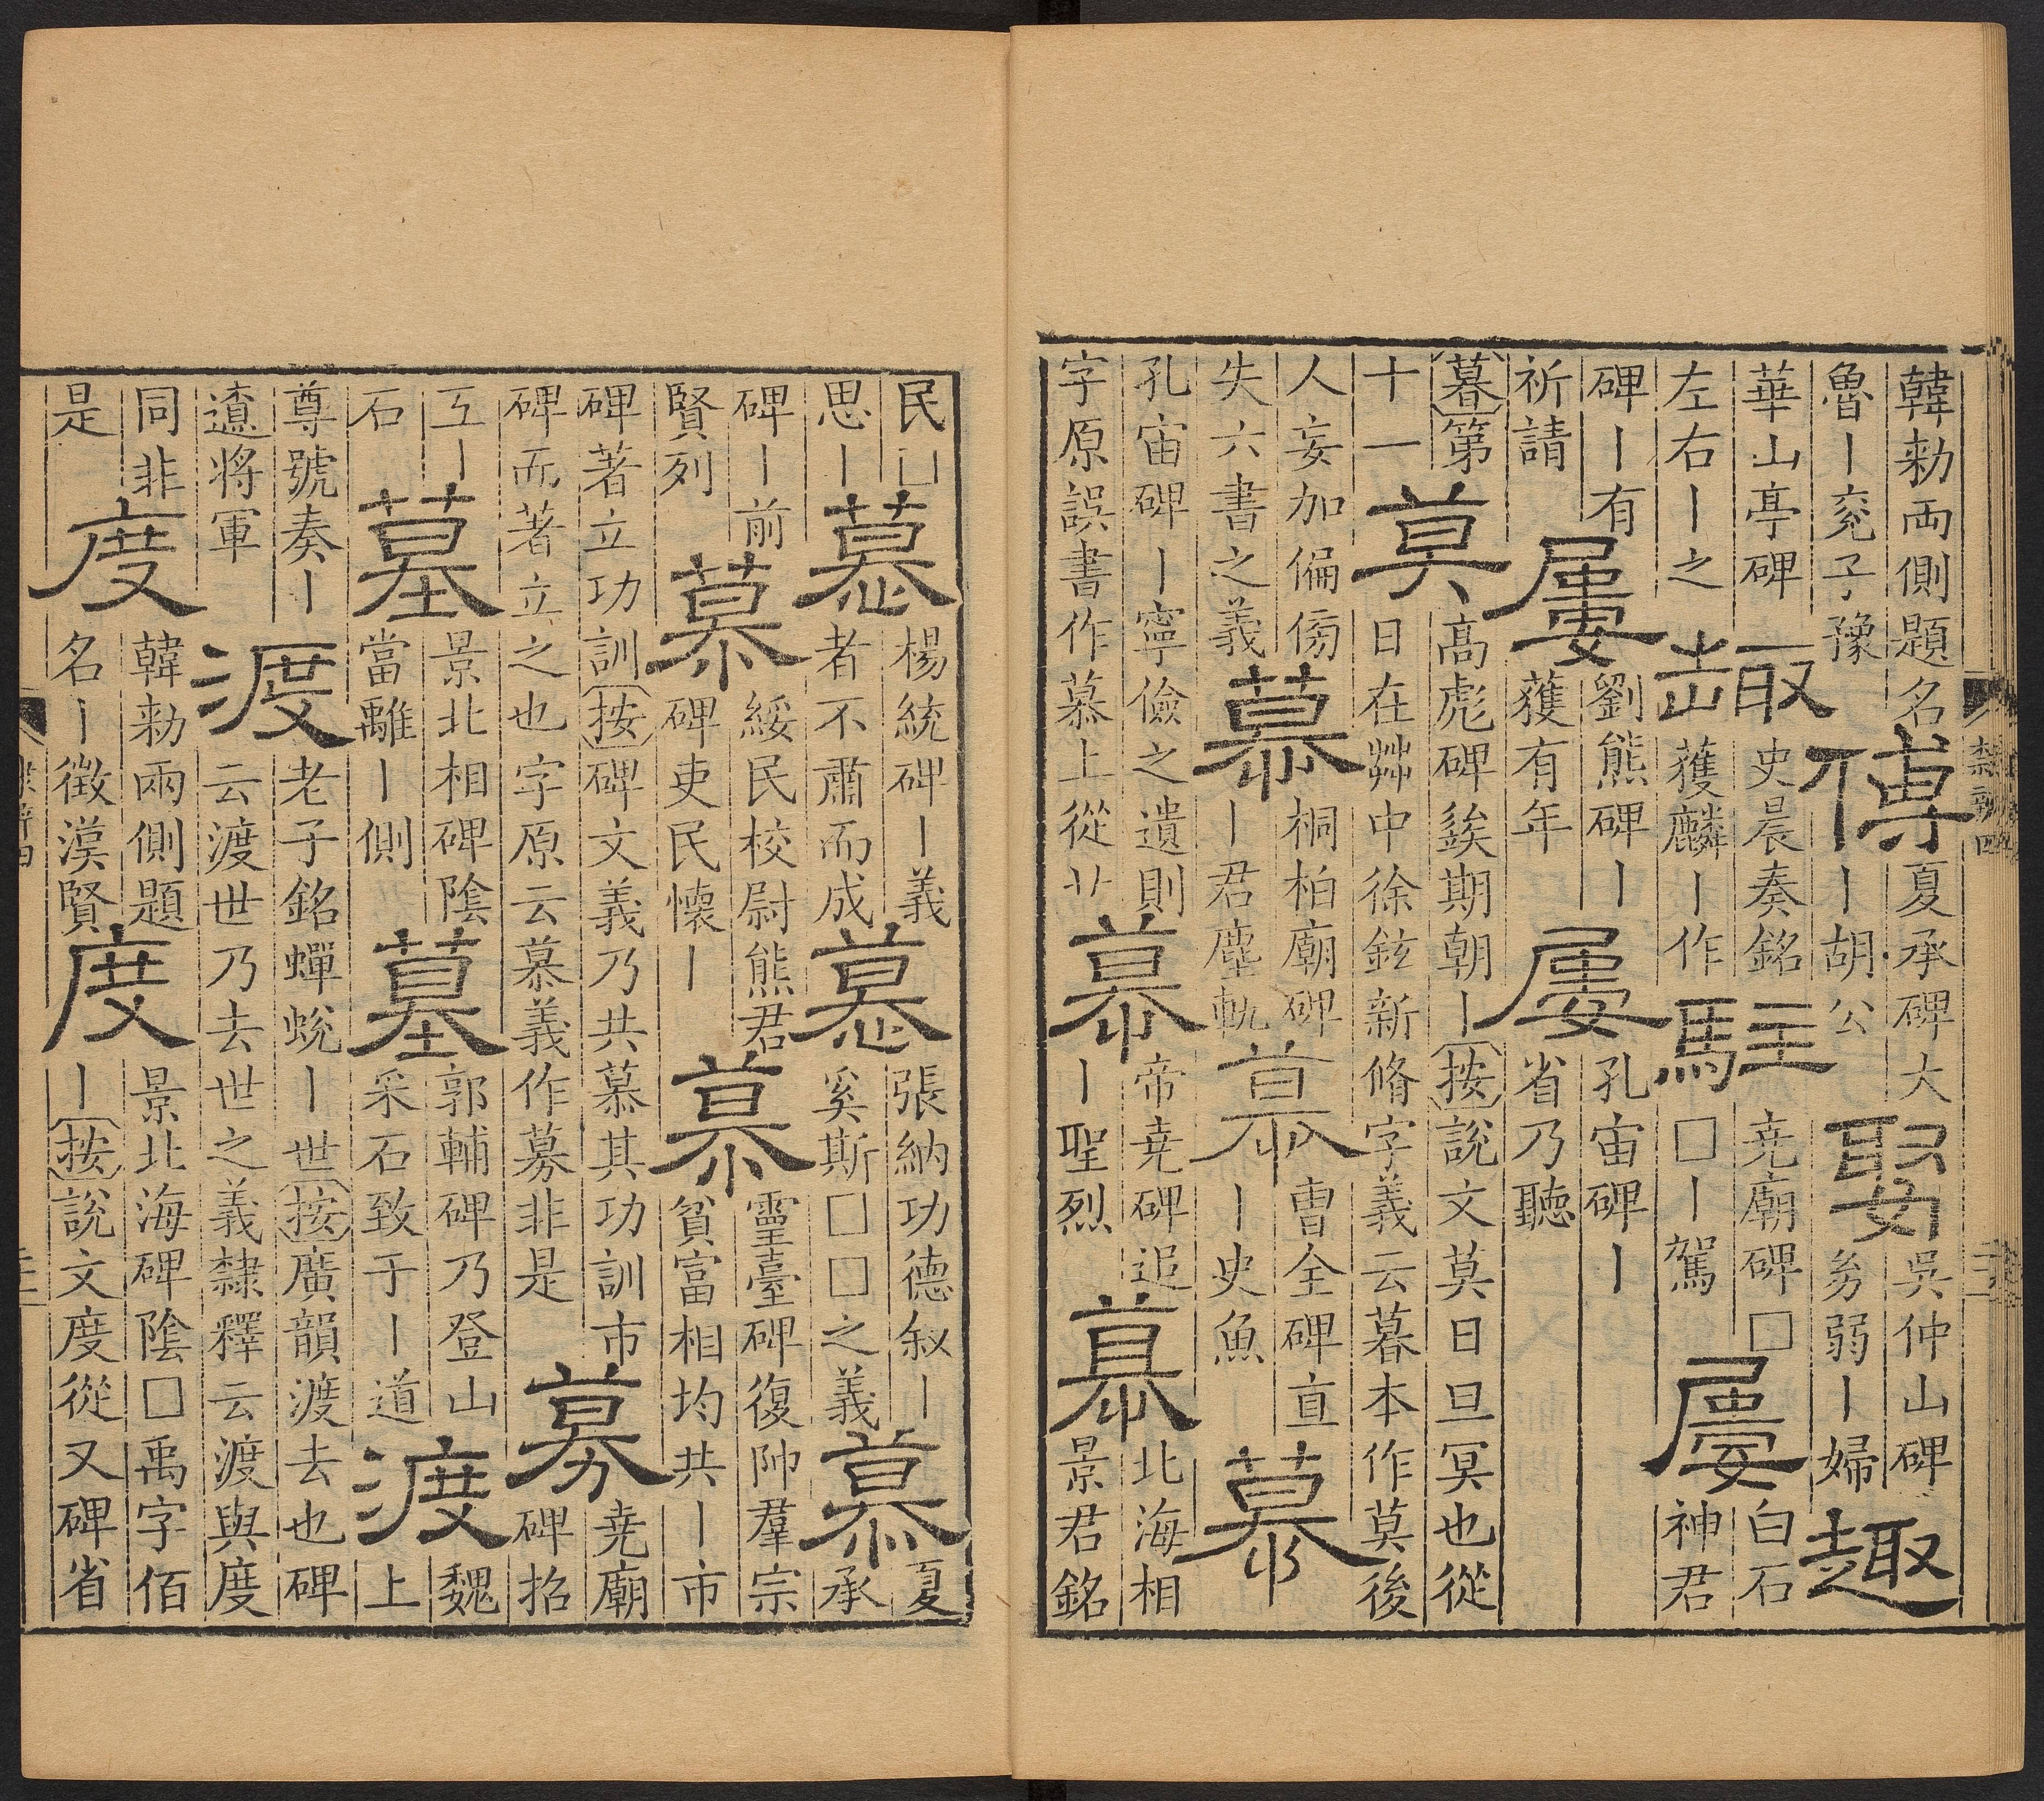 韓勑両側題名
魯丨兖子豫
傅
夏承碑大
丨胡公
娶
吳仲山碑
㓜弱丨婦
趣
華山亭碑
左右丨之
趣
史晨奏銘
獲麟丨作
駐
堯廟碑□
□丨駕
屢
白石
神君
碑丨有
祈請
屢
劉熊碑丨
獲有年
屢
孔宙碑丨
省乃聽
暮第
十一
莫
高彪碑鍨期朝丨按說文莫日旦冥也從
日在茻中徐鉉新脩字義云暮本作莫後
人妄加偏傍
失六書之義
慕
桐柏廟碑
丨君塵軌
慕
曺全碑直
丨史魚
慕
孔宙碑丨寧儉之遺則
字原誤書作慕上從艹
慕
帝堯碑追
丨聖烈
慕
北海相
景君銘
隸辨四
民凵
思丨
慕
楊統碑丨義
者不肅而成
慕
張納功德叙丨
奚斯□□之義
慕
夏
承
碑丨前
賢列
慕
綏民校尉熊君
碑吏民懷丨
慕
靈臺碑復帥羣宗
貧富相均共丨市
碑著立功訓按碑文義乃共慕其功訓市
碑而著立之也字原云慕義作募非是
募
堯廟
碑招
工丨
石
墓
景北相碑陰
當離丨側
墓
郭輔碑乃登山
采石致于丨道
渡
魏
上
尊號奏丨
遼將軍
渡
老子銘蟬蛻丨世按廣韻渡去也碑
云渡世乃去世之義隸釋云渡與度
同非
是
度
韓勑兩側題
名丨徵漢賢
度
景北海碑陰□禹字佰
丨按說文度從又碑省